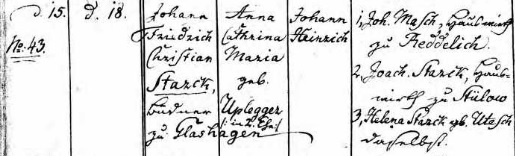 d. 15. d. 18. Johann Anna Johann 1, Joh. Masch, Hauswirth
Friedrich Cathrina Heinrich zu Reddelich.
No. 43. Christian Maria 2, Joach. Starck, Haus-
Starck, geb. wirth zu Stülow
Büdner Uplegger 3, Helena Starck gb. Utesch
zu Glashagen (: in 2. Ehe :) daselbst.